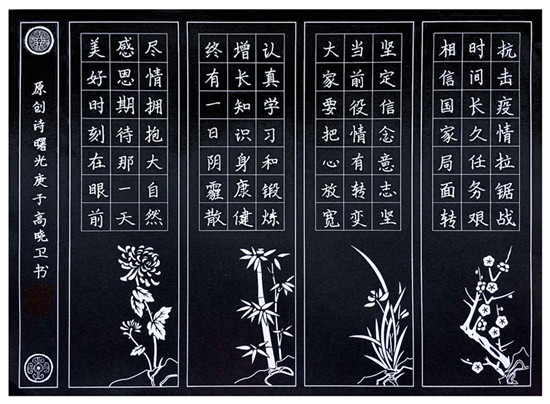 抗击疫情拉锯战
时间长久任务艰
相信国家局面转
坚定信念意志坚
当前役情有转变
大家要把心放宽
认真学习和锻炼
增长知识身康健
终有一日阴霾散
尽情拥抱大自然
感思期待那一天
美好时刻在眼前
原创诗曙光庚子高晓卫书